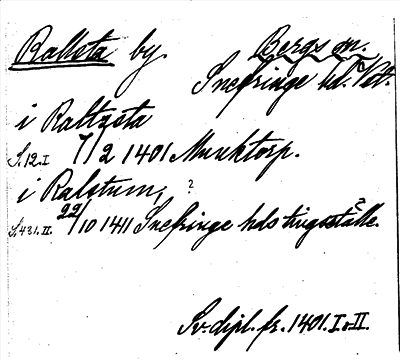 Rallsta by. Bergs sn.
Snefringe hd. Vstm.
i Raltzsta
S. 12. I 7/2 1401 Munktorp.
i Ralstum, ?
S. 431. II. 22/10 1411 Snefringe hds tingsställe.
Sv. dipl. fr. 1401. I o II.